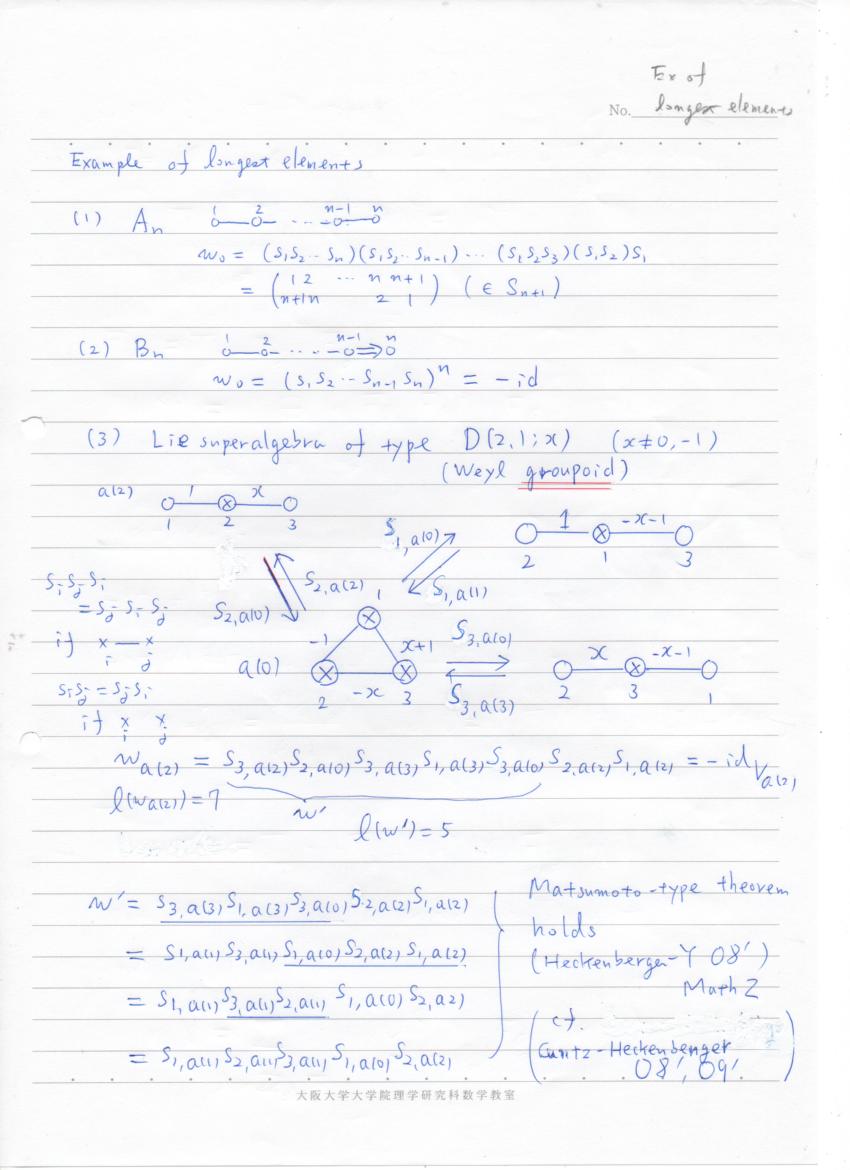 Ex of
No. longest elements
Example of longest elements
(1) Aₙ 1 2 ... n-1 n
w₀ = (s₁s₂...sₙ)(s₁s₂...sₙ₋₁)...(s₁s₂s₃)(s₁s₂)s₁
= (1 2 ... n n+1
n+1 n 2 1) (∈ Sₙ₊₁)
(2) Bₙ 1 2 ... n-1 n
w₀ = (s₁s₂...sₙ₋₁sₙ)ⁿ = -id
(3) Lie superalgebra of type D(2,1;x) (x≠0,-1)
(Weyl groupoid)
a(2) 1 x
1 2 3
S₁,a(0) 1 -x-1
2 1 3
S₂,a(2) 1 S₁,a(1)
SᵢSⱼSᵢ
=SⱼSᵢSⱼ S₂,a(0)
if x — x
i j
-1 x+1 S₃,a(0) x -x-1
a(0)
2 -x 3 S₃,a(3) 2 3 1
SᵢSⱼ=SⱼSᵢ
if x x
i j
w a(2) = S₃,a(2)S₂,a(0)S₃,a(3)S₁,a(3)S₃,a(0)S₂,a(2)S₁,a(2) = -id V a(2)
ℓ(w a(2))=7
w'
ℓ(w')=5
w' = S₃,a(3)S₁,a(3)S₃,a(0)S₂,a(2)S₁,a(2)
= S₁,a(1)S₃,a(1)S₁,a(0)S₂,a(2)S₁,a(2)
= S₁,a(1)S₃,a(1)S₂,a(1) S₁,a(0)S₂,a2)
= S₁,a(1)S₂,a(1)S₃,a(1)S₁,a(0)S₂,a(2)
Matsumoto-type theorem
holds
(Heckenberger-Y 08')
Math Z
(cf.
Cuntz-Heckenberger
08', 09')
大阪大学大学院理学研究科数学教室